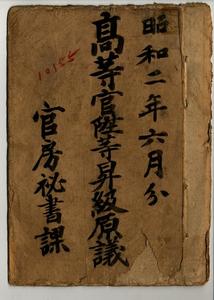 昭和二年六月分
高等官陞等昇級原議
官房秘書課
10155